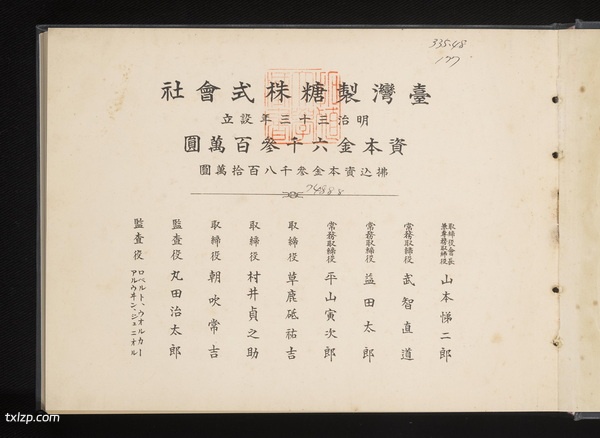 335.48
177
臺灣製糖株式會社
明治三十三年設立
資本金六千參百萬圓
拂込資本金參千八百拾萬圓
74888
取締役會長兼專務取締役 山本悌二郎
常務取締役 武智直道
常務取締役 益田太郎
常務取締役 平山寅次郎
取締役 草鹿砥祐吉
取締役 村井貞之助
取締役 朝吹常吉
監査役 丸田治太郎
監査役 ロベルト、ウオルカー アルウ井ン、ジュニオル
txlzp.com